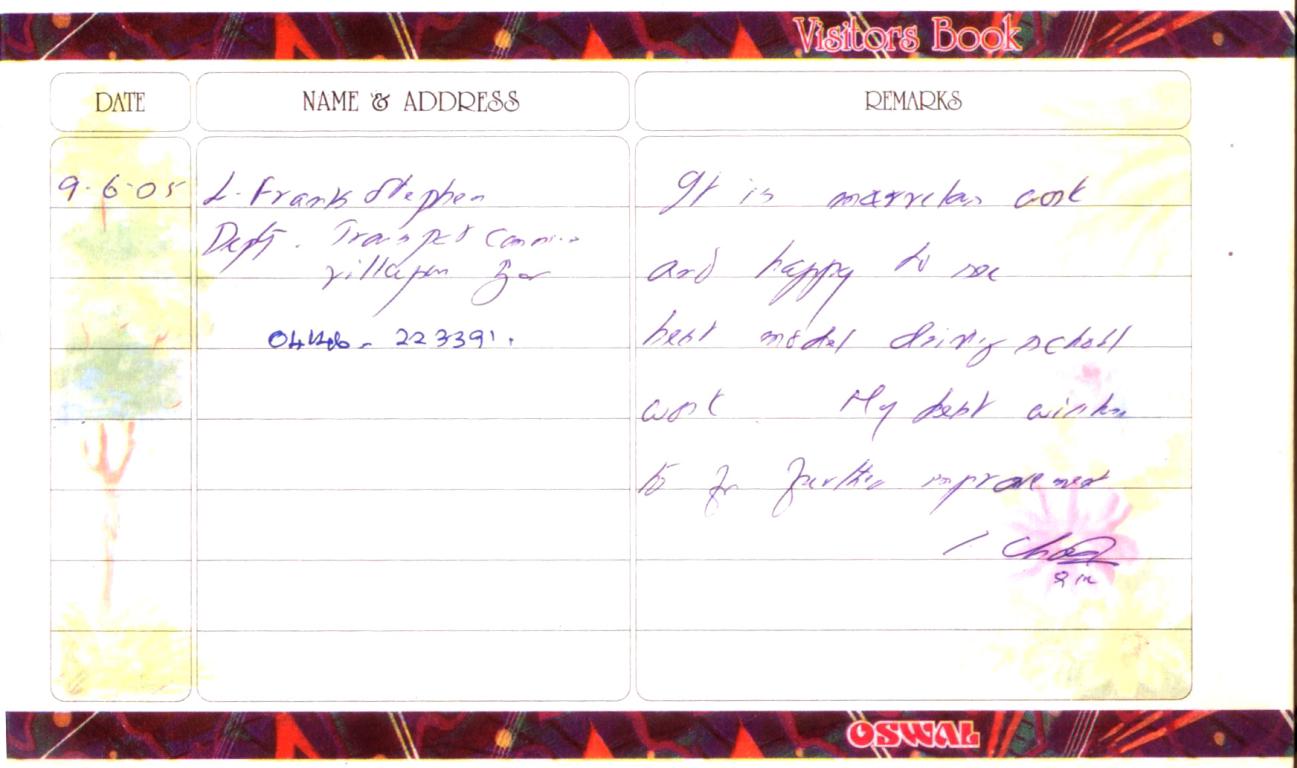 Visitors Book
DATE NAME & ADDRESS REMARKS
9-6-05 L. Frank Stephen It is marvelas work
Dept. Transport
villupm and happy to see
223391. best model driving school
work My best wishes
to for further improvement
OSWAL